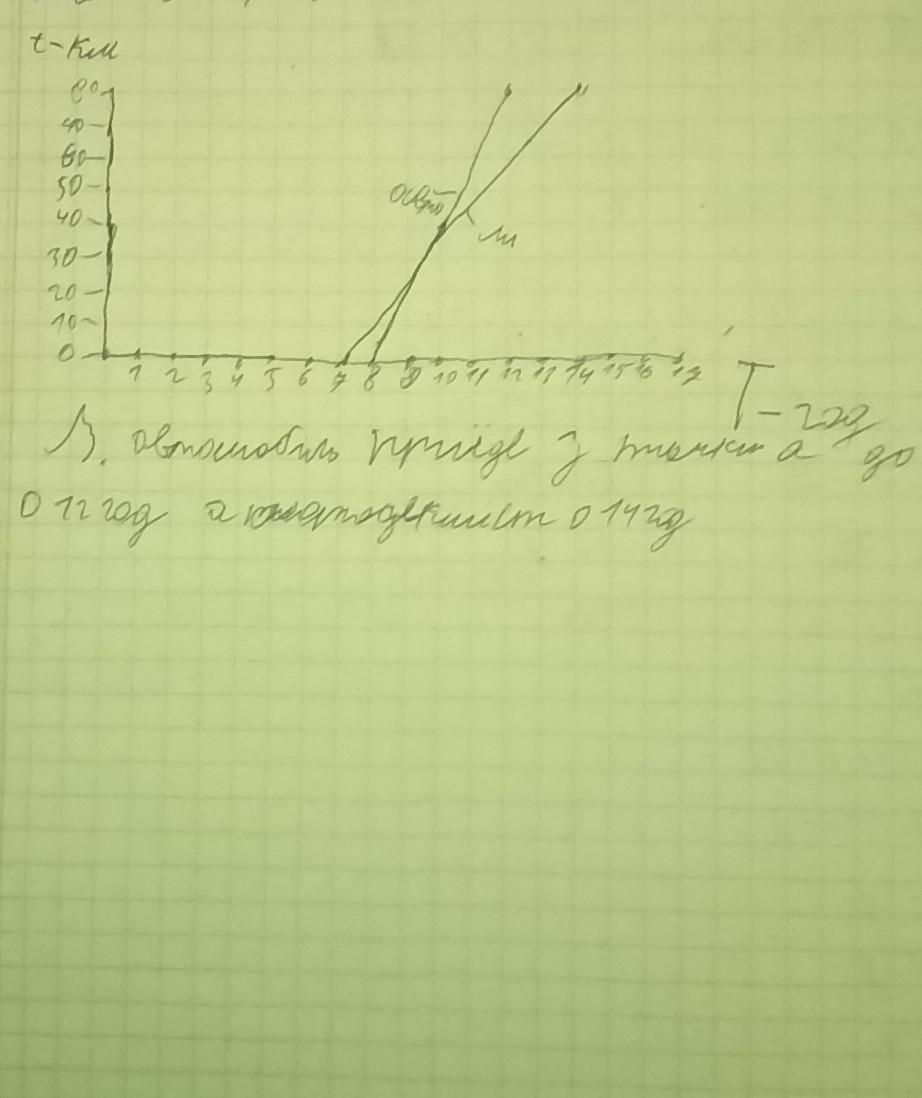 t-км
80
40
60
50
40
30
20
10
0
авто
1 2 3 4 5 6 7 8 9 10 11 12 13 14 15 16 17
T - год
В. автомобиль приїде з точки а до
О 12 год а О 14 год